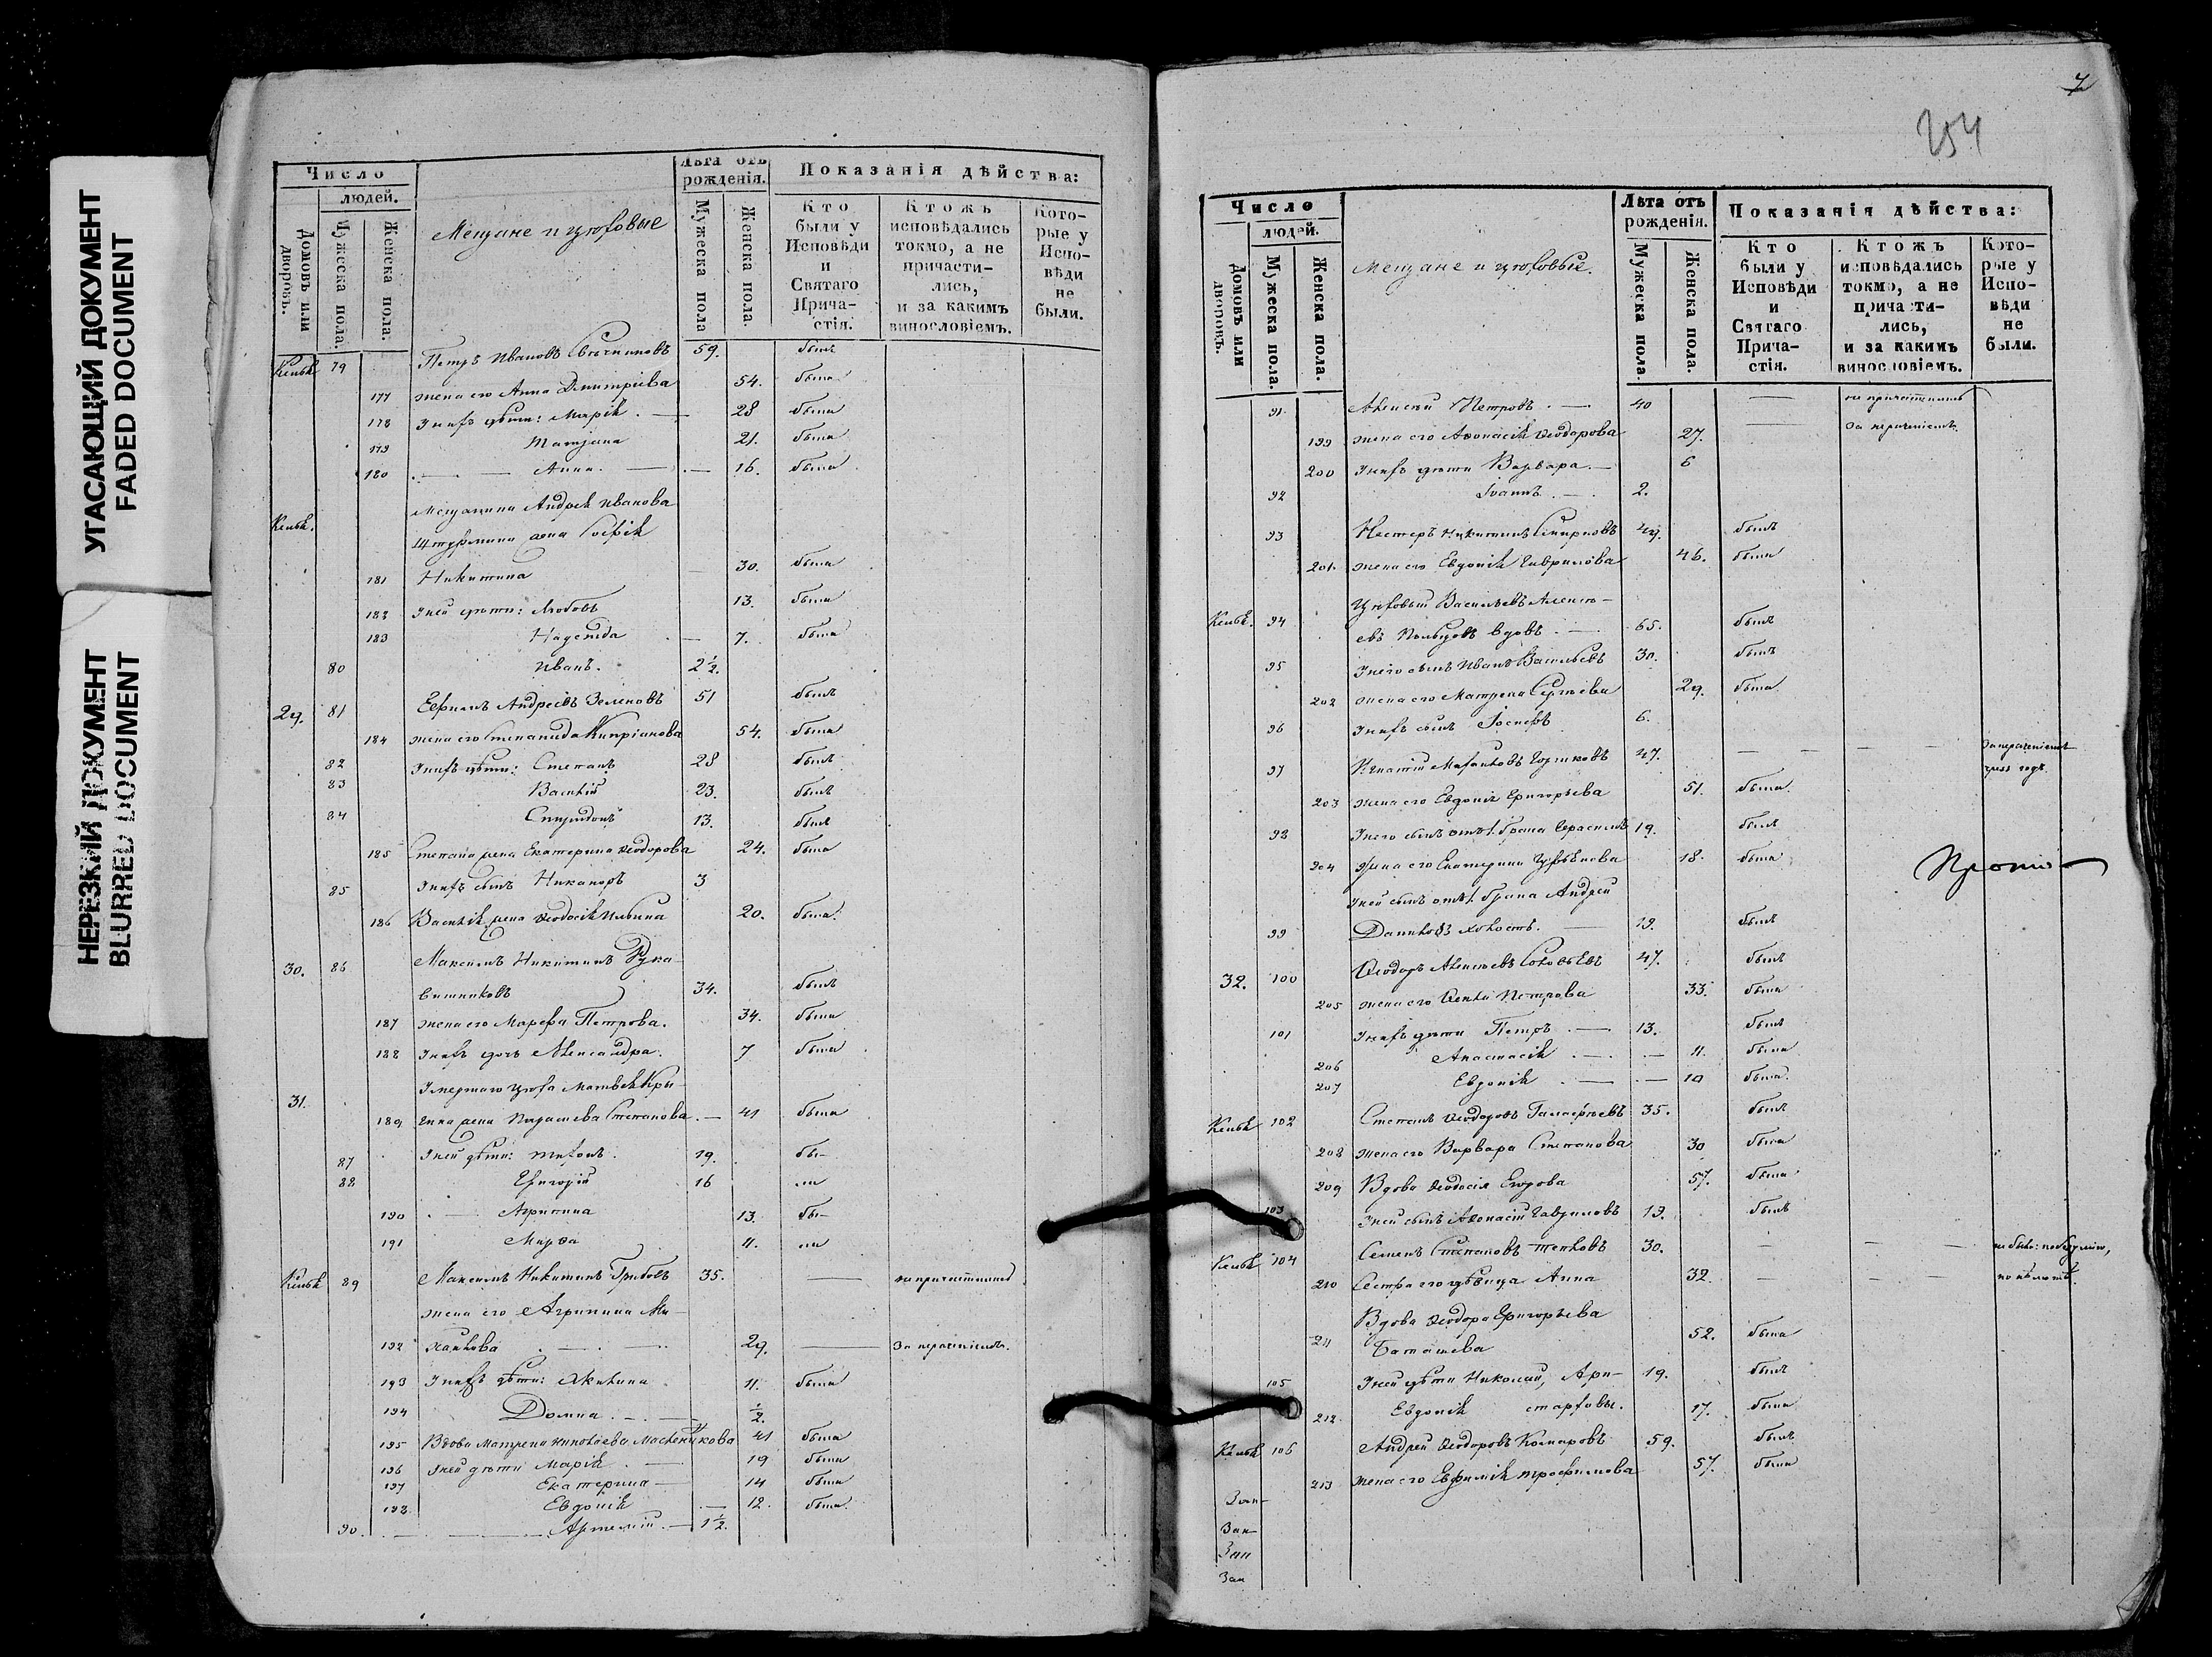 УГАСАЮЩИЙ ДОКУМЕНТ
FADED DOCUMENT
НЕРЕЗКИЙ ДОКУМЕНТ
BLURRED DOCUMENT
Число
людей.
Домовъ или дворовъ.
Мужеска пола.
Женска пола.
Мещане и цеховые
Лѣта отъ рожденія.
Мужеска пола
Женска пола.
Показанія дѣйства:
Кто были у Исповѣди и Святаго Прича-стія.
Ктожъ исповѣдались токмо, а не причасти-лись, и за какимъ винословіемъ.
Кото-рые у Испо-вѣди не были.
79 Петръ Ивановъ 59. былъ
177 жена его Анна Дмитріева 54. была
178 У нихъ дѣти: Марія 28 была
179 Татьяна 21. была
180 Анна. 16. была
Мещанина Андрея Иванова
жена Софія
181 Никитина 30. была
182 У ней дѣти: Любовь 13. была
183 Надежда 7. была
80 Иванъ. 2 1/2.
29. 81 Ефимъ Андреевъ Зеленовъ 51 былъ
184 жена его Степанида Кипріанова 54. была
82 У нихъ дѣти: Степанъ 28 былъ
83 Василій 23. былъ
84 Спиридонъ 13. былъ
185 Степана жена Екатерина Ѳеодорова 24. была
85 У нихъ сынъ Никаноръ 3
186 Василія жена Ѳеодосія Ильина 20. была.
30. 86 Максимъ Никитинъ Рука-
вишниковъ 34. былъ
187 жена его Марфа Петрова. 34. была
188 У нихъ дочь Александра. 7 была
31. Умершаго цехов. Матвея Кры-
189 жена Степанова 41 была
87 У ней дѣти: Тихонъ. 19. бы-
88 Григорій 16
190 Агрипина 13. бы-
191 Марѳа 11.
89 Максимъ Никитинъ Грибовъ 35. не причастился
жена его Агрипина Ми-
192 хайлова 29. За нераченіемъ.
193 У нихъ дѣти: Акилина 11. была
194 Домна 1/2.
195 Вдова Матрена Николаева Масленикова 41 была
196 У ней дѣти Марія 19 была
197 Екатерина 14 была
198 Евдокія 12. была.
90. Артемій. 1 1/2.
7
254
Число
людей.
Домовъ или дворовъ.
Мужеска пола.
Женска пола.
Мещане и цеховые.
Лѣта отъ рожденія.
Мужеска пола.
Женска пола.
Показанія дѣйства:
Кто были у Исповѣди и Святаго Прича-стія.
Ктожъ исповѣдались токмо, а не причасти-лись, и за какимъ винословіемъ.
Кото-рые у Испо-вѣди не были.
91. Алексѣй Петровъ 40 не причастились
199 жена его Аѳанасія Ѳеодорова 27. За нераченіемъ.
200 У нихъ дѣти Варвара. 6
92 Іоаннъ 2.
93 Нестеръ Никитинъ Смирновъ 49. былъ
201. жена его Евдокія Гаврилова 46. была
94 Цеховый Василей Алексѣ-
евъ вдовъ 65. былъ
95 У него сынъ Иванъ Васильевъ 30. былъ
202 жена его Матрена Сергѣева 29. была.
96 У нихъ сынъ Іосифъ 6.
97 Игнатій Михайловъ 47. За нераченіемъ
203 жена его Евдокія Григорьева 51. была.
98 У него сынъ отъ 1. брака Герасимъ 19. былъ
204 жена его Екатерина 18. была
У ней сынъ отъ 1. брака Андрей
99 Даниловъ холостъ. 19. былъ
Прото-
32. 100 Ѳеодоръ Алексѣевъ Соловьевъ 47. былъ
205 жена его Ѳекла Петрова 33. была
101 У нихъ дѣти Петръ 13. былъ
206 Анастасія 11. была
207 Евдокія 10 была.
102 Степанъ Ѳеодоровъ 35. былъ
208 жена его Варвара Степанова 30 была
209 Вдова Ѳеодосія Егорова 57. была
103 У ней сынъ Аѳанасій Гавриловъ 19. былъ
104 Семенъ Степановъ 30.
210 Сестра его дѣвица Анна 32.
Вдова Ѳеодора Григорьева
211 Баташева 52. была
105 У ней дѣти Николай, Ари- 19. былъ
212 Евдокія старховы. 17. была
106 Андрей Ѳеодоровъ Комаровъ 59. былъ
213 жена его Евфимія Трофимова 57. была
Зап-
Зап-
Зап
Зап